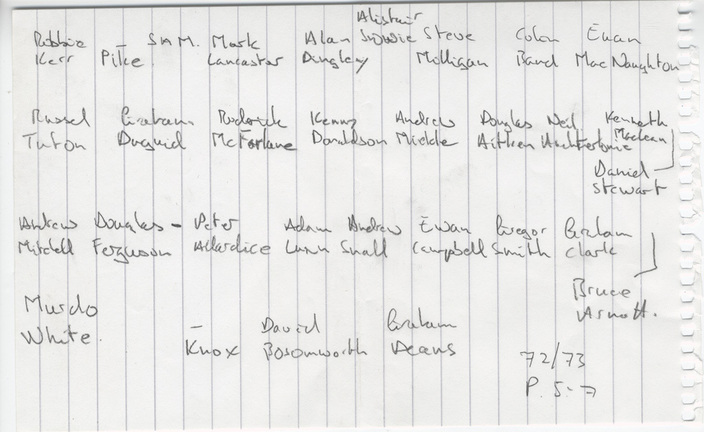 Alistair
Robbie – S M M. Mark Alan Bowie Steve Colin Ewan
Kerr Pike Lancaster Dingley Molligan Band MacNaughton
Russel Graham Roderick Kenny Andrew Douglas Neil Kenneth
Tuton Duguid McFarlane Donaldson Mickle Aitken Auchterlonie Maclean
Daniel
Stewart
Andrew Douglas – Peter Adam Andrew Ewan Gregor Graham
Mitchell Ferguson Allardice Lunn Small Campbell Smith Clark
Bruce
Arnott.
Murdo
White.
– David Graham
Knox Bosomworth Deans
72/73
P. 5-7